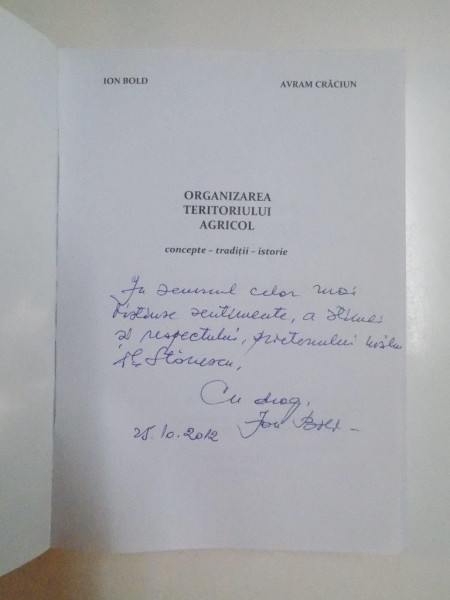 ION BOLD
AVRAM CRĂCIUN
ORGANIZAREA
TERITORIULUI
AGRICOL
concepte – tradiții – istorie
În semnul celor mai
sentimente, a stimei
și respectului, prietenului
Stănescu,
Cu drag,
Ion Bold
25.10.2012